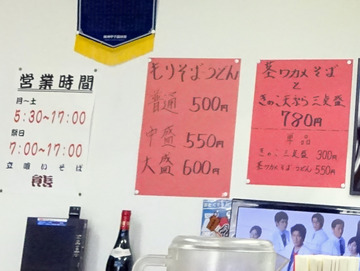 営業時間
月〜土
5:30〜17:00
祭日
7:00〜17:00
立喰いそば
もりそばうどん
普通 500円
中盛 550円
大盛 600円
茎ワカメそば
と
きのこ天ぷら三点盛
780円
単品
きのこ三点盛 300円
茎ワカメそば・うどん 550円